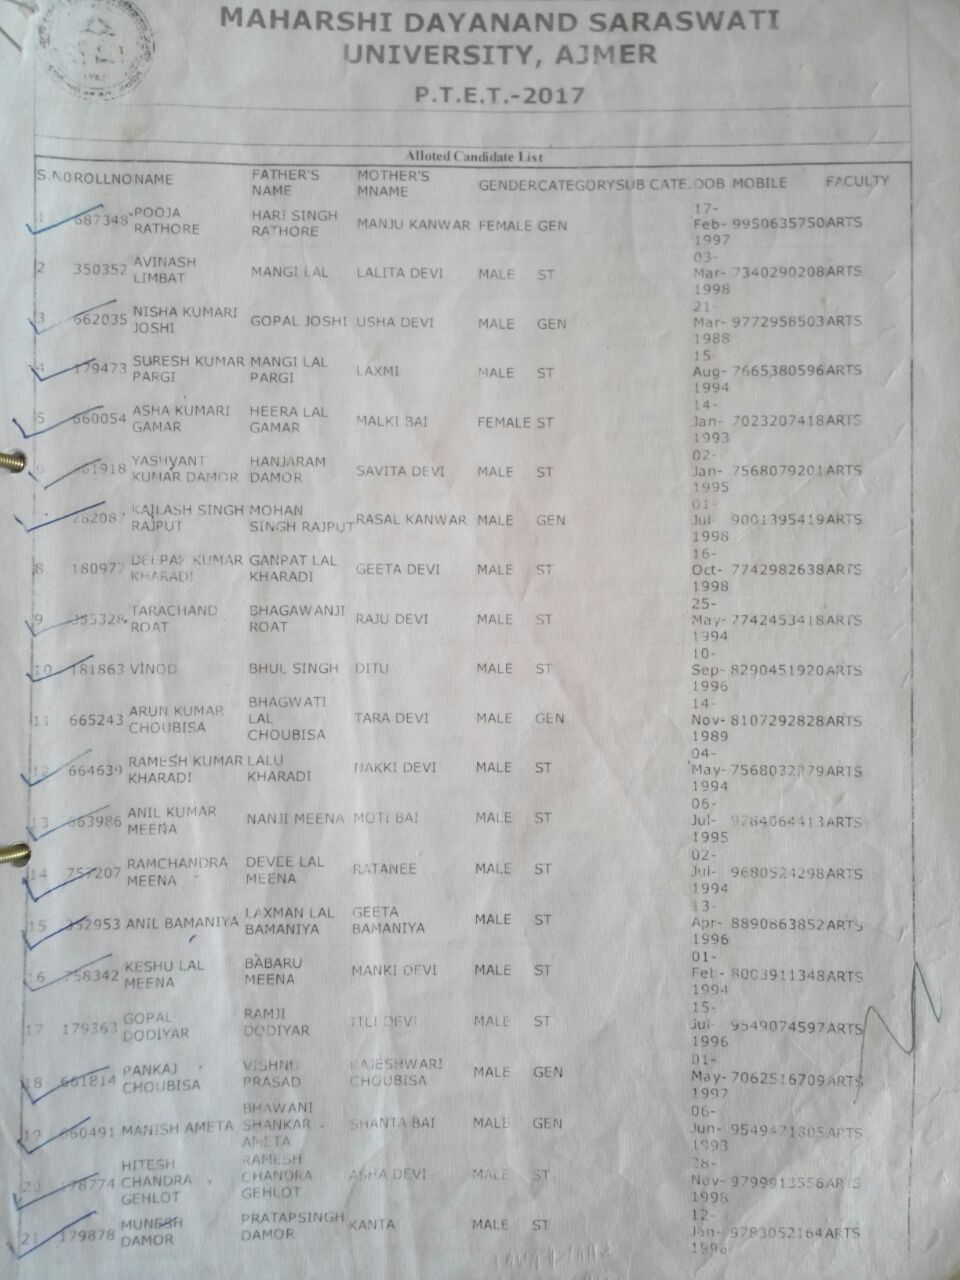 MAHARSHI DAYANAND SARASWATI
UNIVERSITY, AJMER
P.T.E.T.-2017
Alloted Candidate List
S.NO ROLLNO NAME FATHER'S NAME MOTHER'S MNAME GENDER CATEGORY SUB CATE. DOB MOBILE FACULTY
1 687348 POOJA RATHORE HARI SINGH RATHORE MANJU KANWAR FEMALE GEN 17-Feb-1997 9950635750 ARTS
2 350352 AVINASH LIMBAT MANGI LAL LALITA DEVI MALE ST 03-Mar-1998 7340290208 ARTS
3 662035 NISHA KUMARI JOSHI GOPAL JOSHI USHA DEVI MALE GEN 21-Mar-1988 9772958503 ARTS
4 179473 SURESH KUMAR PARGI MANGI LAL PARGI LAXMI MALE ST 15-Aug-1994 7665380596 ARTS
5 660054 ASHA KUMARI GAMAR HEERA LAL GAMAR MALKI BAI FEMALE ST 14-Jan-1993 7023207418 ARTS
6 YASHVANT KUMAR DAMOR HANJARAM DAMOR SAVITA DEVI MALE ST 02-Jan-1995 7568079201 ARTS
KAILASH SINGH RAJPUT MOHAN SINGH RAJPUT RASAL KANWAR MALE GEN 01-Jul-1998 9001395419 ARTS
8 180977 DEEPAK KUMAR KHARADI GANPAT LAL KHARADI GEETA DEVI MALE ST 16-Oct-1998 7742982638 ARTS
9 TARACHAND ROAT BHAGAWANJI ROAT RAJU DEVI MALE ST 25-May-1994 7742453418 ARTS
10 181863 VINOD BHUL SINGH DITU MALE ST 10-Sep-1996 8290451920 ARTS
11 665243 ARUN KUMAR CHOUBISA BHAGWATI LAL CHOUBISA TARA DEVI MALE GEN 14-Nov-1989 8107292828 ARTS
12 664639 RAMESH KUMAR KHARADI LALU KHARADI NAKKI DEVI MALE ST 04-May-1994 ARTS
13 663986 ANIL KUMAR MEENA NANJI MEENA MOTI BAI MALE ST 06-Jul-1995 ARTS
14 757207 RAMCHANDRA MEENA DEVEE LAL MEENA RATANEE MALE ST 02-Jul-1994 9680524298 ARTS
15 352953 ANIL BAMANIYA LAXMAN LAL BAMANIYA GEETA BAMANIYA MALE ST 13-Apr-1996 8890863852 ARTS
16 758342 KESHU LAL MEENA BABARU MEENA MANKI DEVI MALE ST 01-Feb-1994 8003911348 ARTS
17 179363 GOPAL DODIYAR RAMJI DODIYAR DEVI MALE ST 15-Jul-1996 9549074597 ARTS
18 661814 PANKAJ CHOUBISA VISHNU PRASAD RAJESHWARI CHOUBISA MALE GEN 01-May-1997 7062516709 ARTS
19 660491 MANISH AMETA BHAWANI SHANKAR AMETA SHANTA BAI MALE GEN 06-Jun-1993 9549471805 ARTS
20 HITESH CHANDRA GEHLOT RAMESH CHANDRA GEHLOT ASHA DEVI MALE ST 28-Nov-1998 9799913556 ARTS
21 179878 MUNESH DAMOR PRATAPSINGH DAMOR KANTA MALE ST 12-Jan-1996 9783052164 ARTS